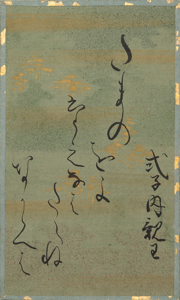 式子内親王
たまの
をよ
たえなは
たえね
なからへは